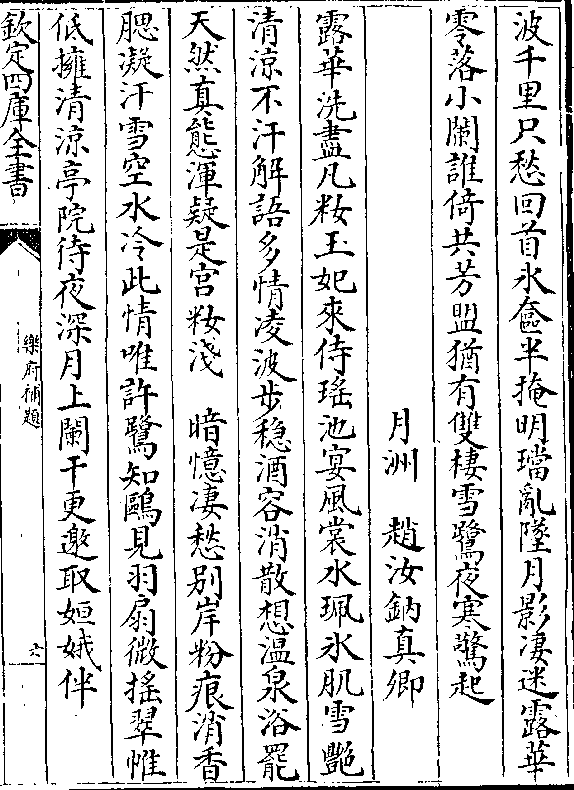 波千里只愁回首氷奩半掩明璫亂墜月影凄迷露華
零落小闌誰倚共芳盟猶有雙棲雪鷺夜寒驚起
月洲　趙汝鈉真卿
露華洗盡凡粧玉妃來侍瑤池宴風裳水珮氷肌雪艷
清涼不汗解語多情凌波步穏酒容消散想温泉浴罷
天然真態渾疑是宮粧淺　暗憶凄愁别岸粉痕消香
腮凝汗雪空水冷此情唯許鷺知鷗見羽扇微揺翠帷
低擁清涼亭院待夜深月上闌干更邀取姮娥伴
欽定四庫全書
樂府補題
六